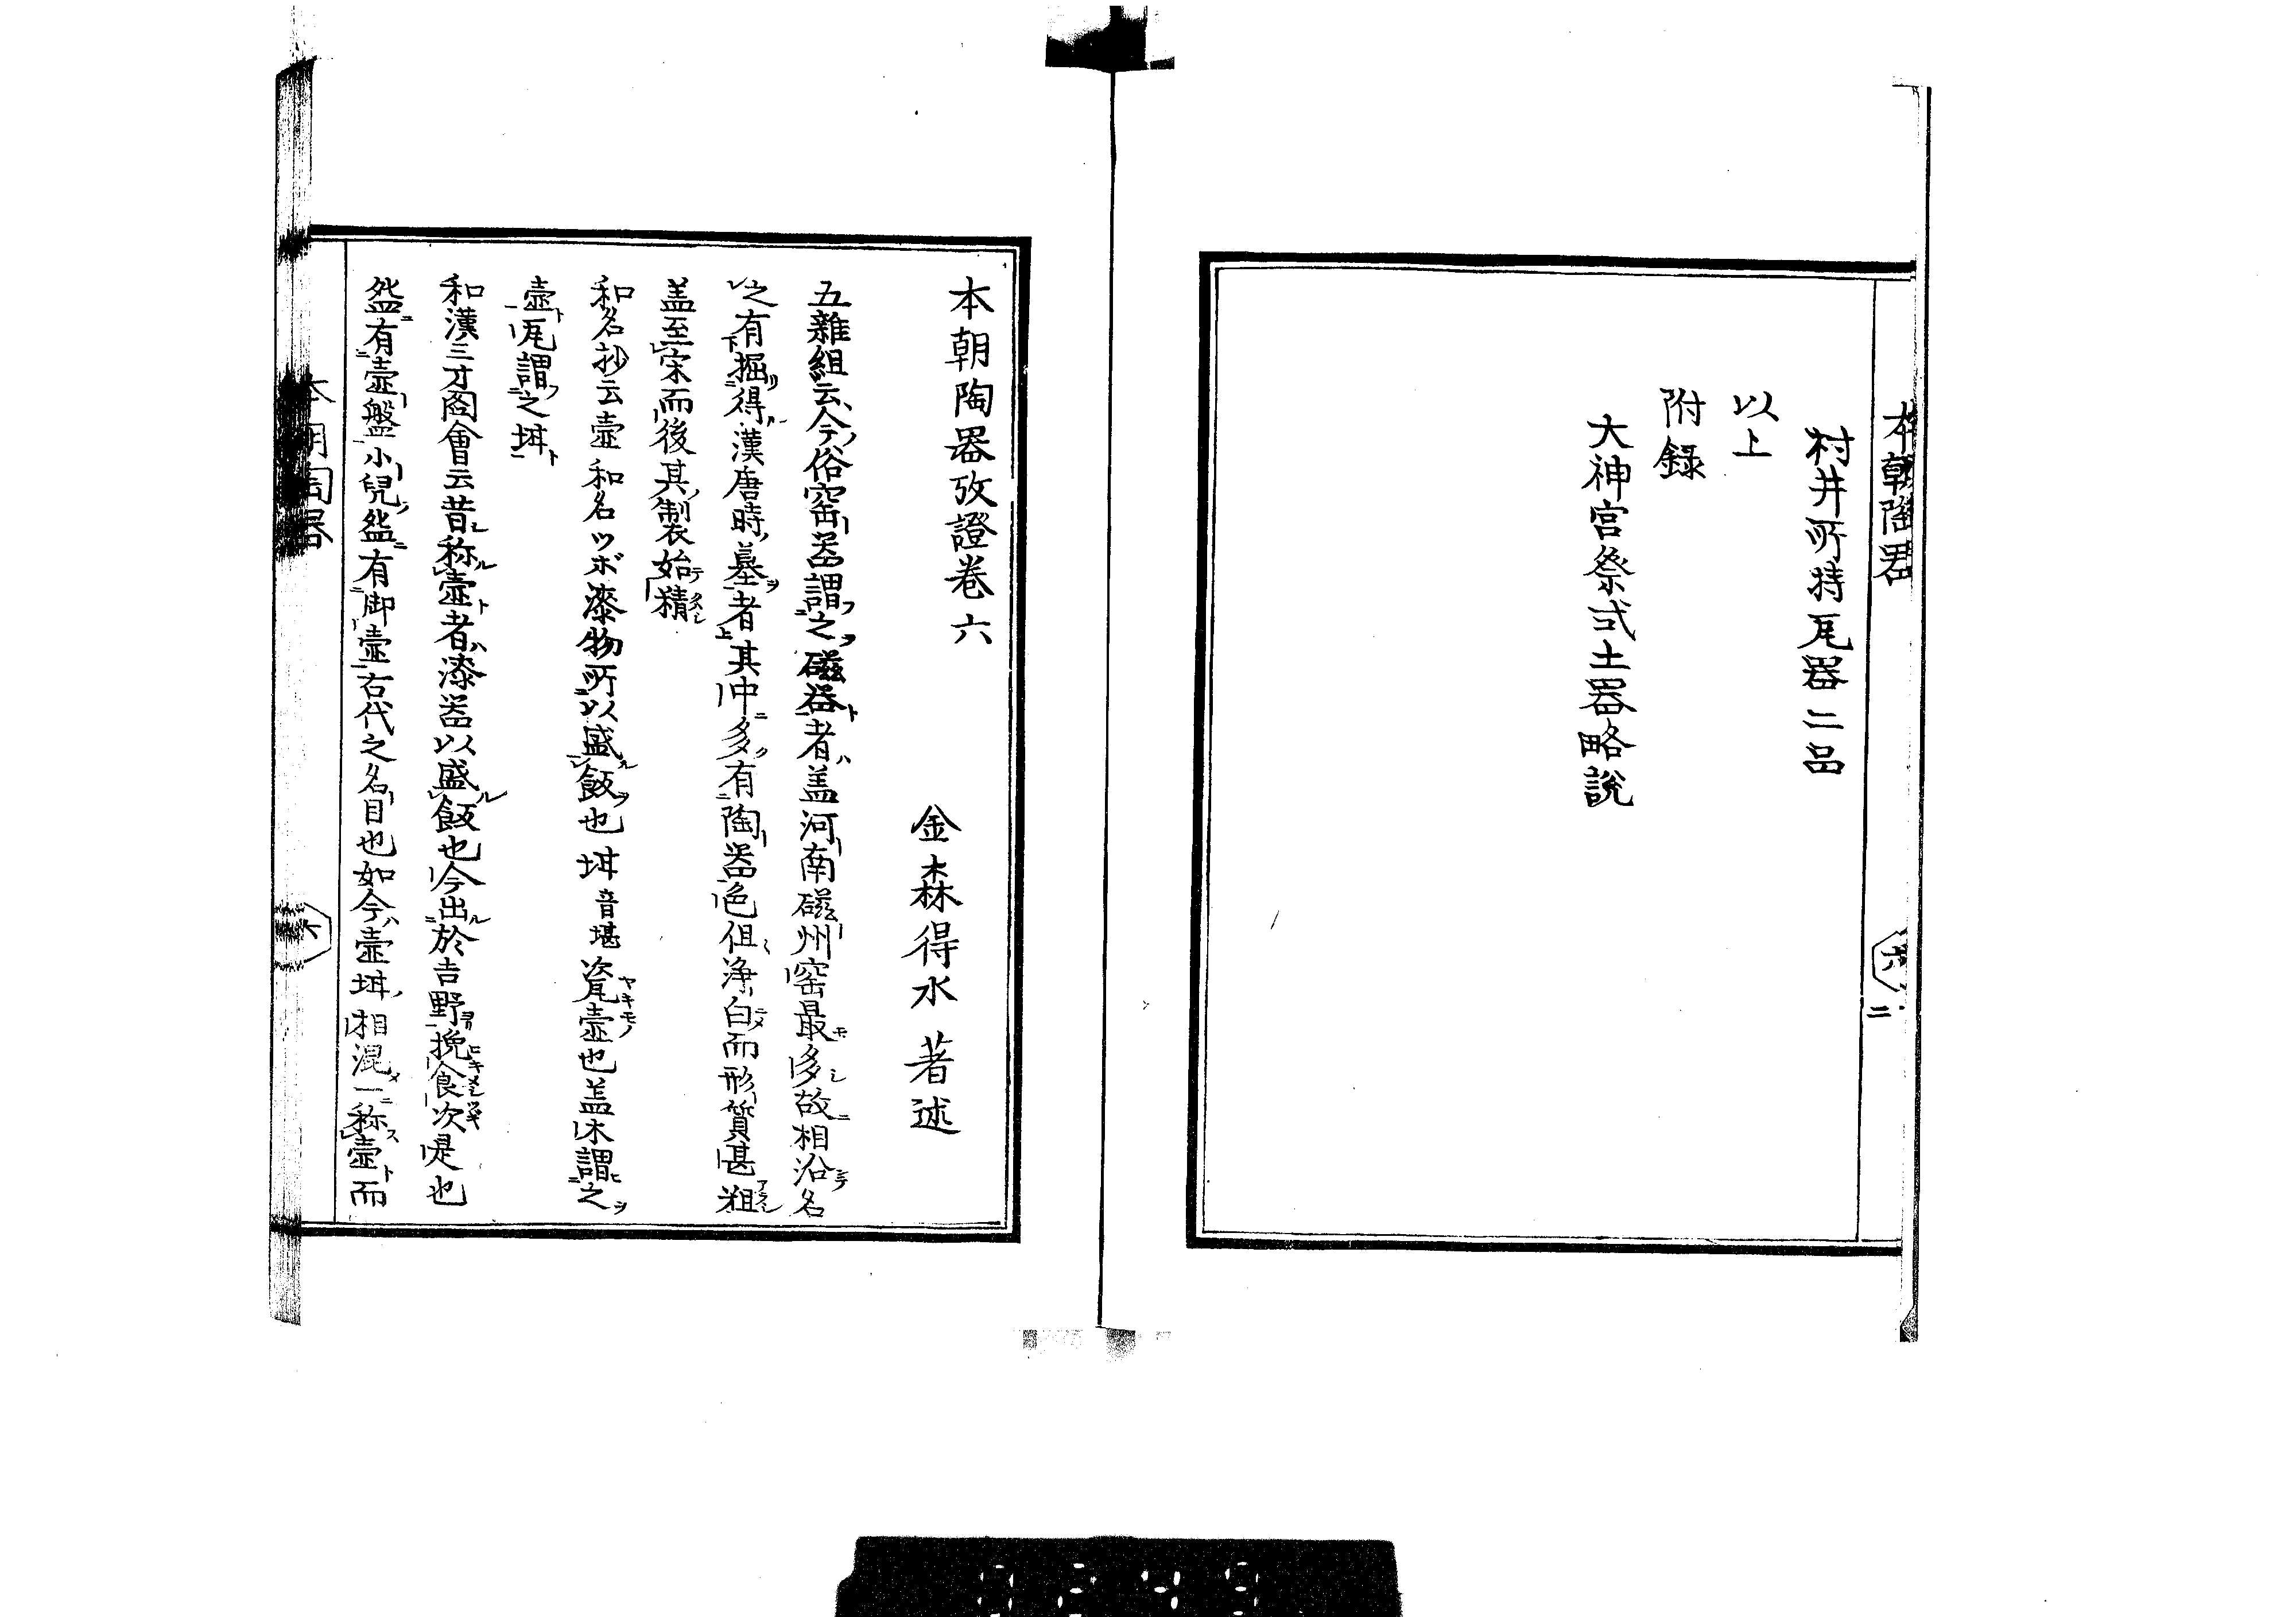 本朝陶器
六
二
村井所持瓦器二品
以上
附録
大神宮祭式土器略説
本朝陶器攷證巻六
金森得水著述
五雜組云今俗窑器謂之磁器者盖河南磁州窑最多故相沿名
之有掘得漢唐時墓者其中多有陶器色但淨白而形質甚粗
盖至宋而後其制製始精
和名抄云壷和名ツボ漆物所以盛飯也坩音堪瓷壷也盖木謂之
壷瓦謂之坩
和漢三才圖會云昔称壷者漆器以盛飯也今出於吉野挽食次是也
有壷盤小兒有御壷右代之名目也如今壷坩相混一称壷而
本朝陶器
六